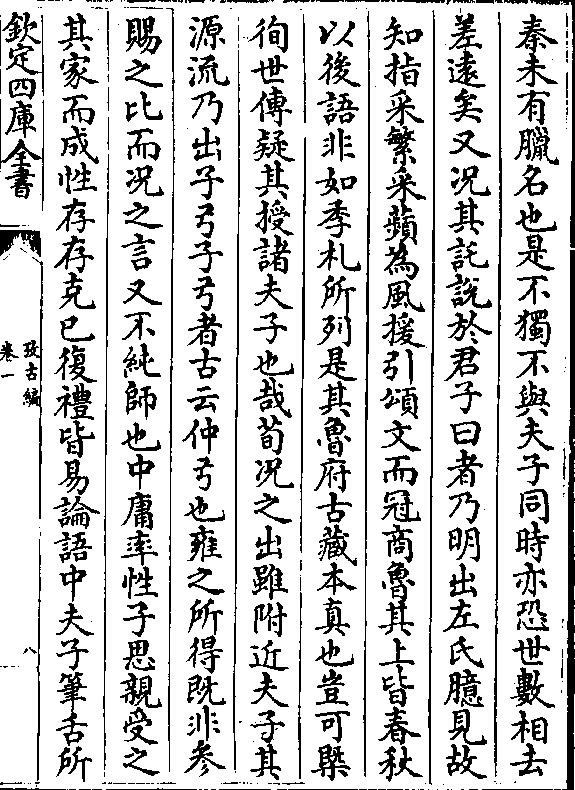 秦未有臘名也是不獨不與夫子同時亦恐世數相去
差遠矣又況其託說於君子曰者乃明出左氏臆見故
知指采繁采蘋為風援引頌文而冠商魯其上皆春秋
以後語非如季札所列是其魯府古藏本真也豈可槩
徇世傳疑其授諸夫子也哉荀况之出雖附近夫子其
源流乃出子弓子弓者古云仲弓也雍之所得既非參
賜之比而况之言又不純師也中庸率性子思親受之
其家而成性存存克已復禮皆易論語中夫子筆舌所
欽定四庫全書
攷古編
卷一
八